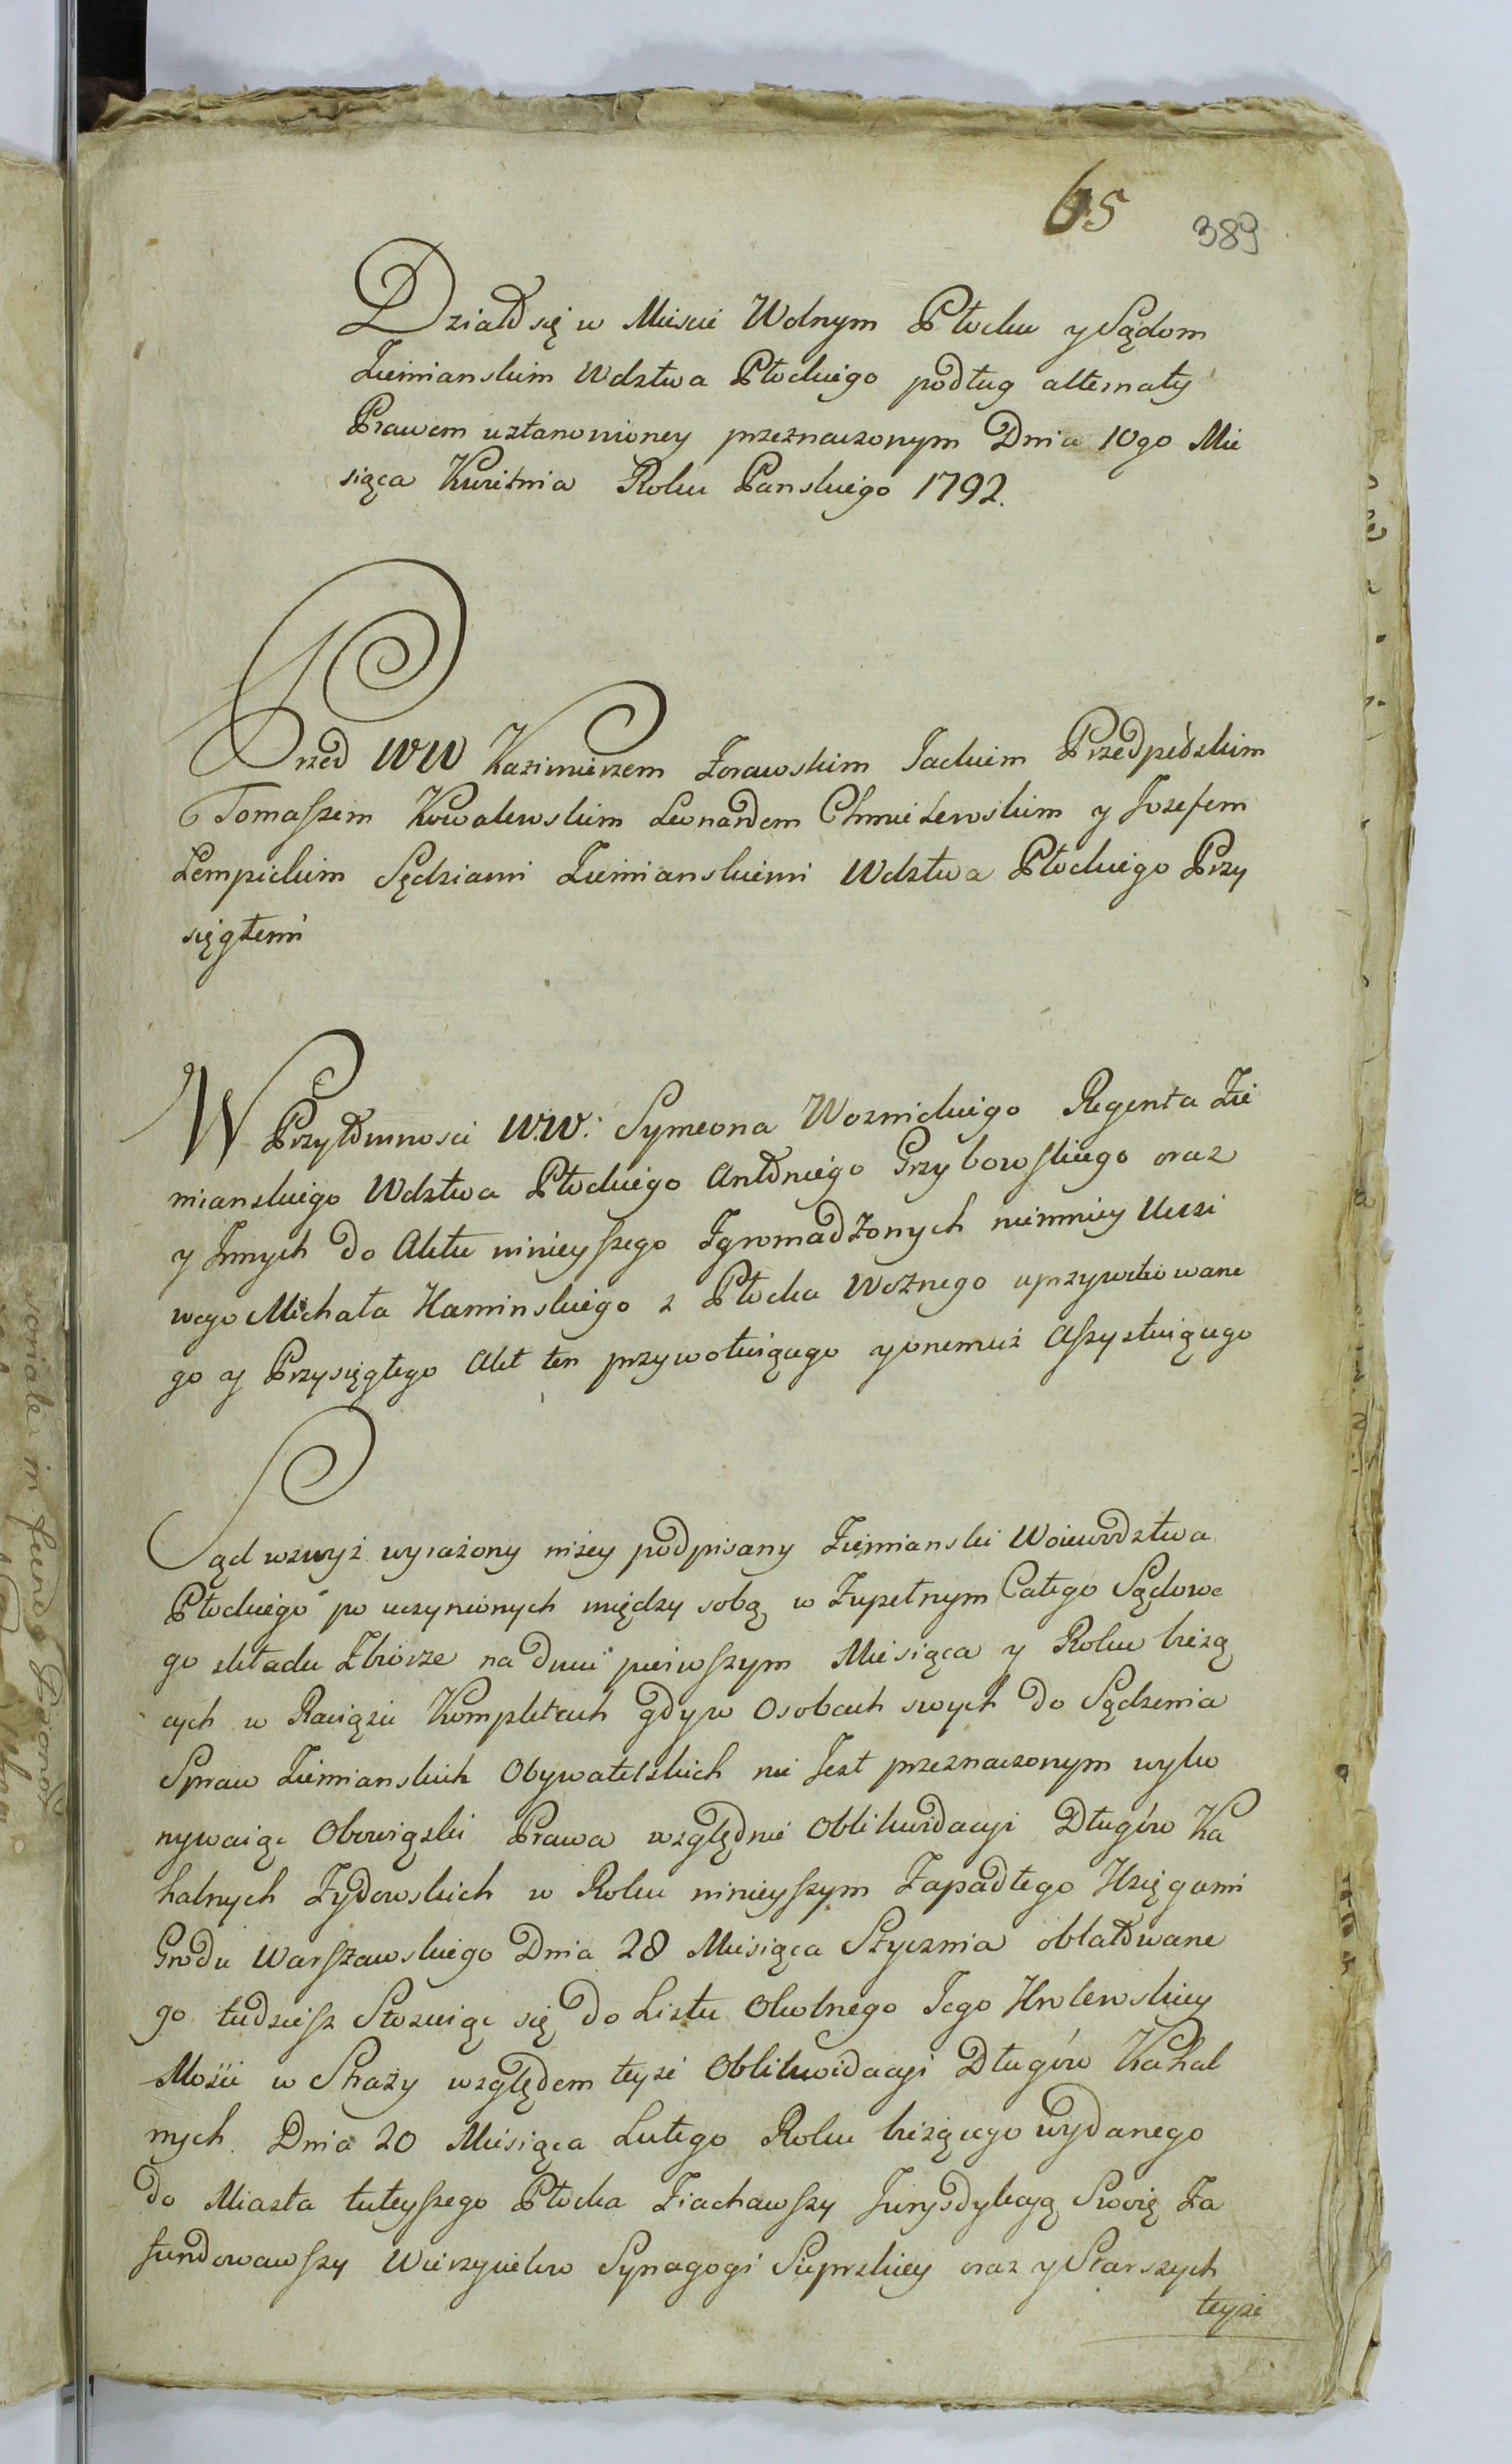 65
389
Działo się w Miescie Wolnym Płocku y Sądom
Ziemianskim Wdztwa Płockiego podług alternaty
Prawem uztanowioney przeznaczonym Dnia 10go Mie
siąca Kwietnia Roku Panskiego 1792.
Przed WW Kazimierzem Zorawskim Jackiem Przedpełskim
Tomaszem Kowalewskim Leonardem Chmielewskim y Jozefem
Lempickim Sędziami Ziemianskiemi Wdztwa Płockiego Przy
sięgłemi
W Przytomnosci W.W: Symeona Woznickiego Regenta Zie
mianskiego Wdztwa Płockiego Antoniego Grzybowskiego oraz
y Innych do Aktu ninieyszego Zgromadzonych niemniey Uczci
wego Michała Kaminskiego z Płocka Woznego uprzywiliowane
go y Przysięgłego Akt ten przywołuiącego y onemuż Assystuiącego
Sąd wzwyż wyrażony niżey podpisany Ziemianski Woiewodztwa
Płockiego po uczynionych między sobą w Zupełnym Całego Sądowe
go składu Zbiorze na dniu pierwszym Miesiąca y Roku bieżą
cych w Raciążu Kompletach gdy w Osobach swych do Sądzenia
Spraw Ziemianskich Obywatelskich nie Jest przeznaczonym wyko
nywaiąc Obowiązki Prawa względnie Oblikwidacyi Długów Ka
halnych Zydowskich w Roku ninieyszym Zapadłego Xsięgami
Grodu Warszawskiego Dnia 28 Miesiąca Stycznia oblatowane
go tudziesz Stosuiąc się do Listu Okolnego Jego Krolewskiey
Mości w Straży względem teyże Oblikwidacyi Długów Kahal
nych Dnia 20 Miesiąca Lutego Roku bieżącego wydanego
do Miasta tuteyszego Płocka Ziachawszy Jurysdykcyą Swoię Za
fundowawszy Wierzycielow Synagogi Sieprskiey oraz y Starszych
teyże